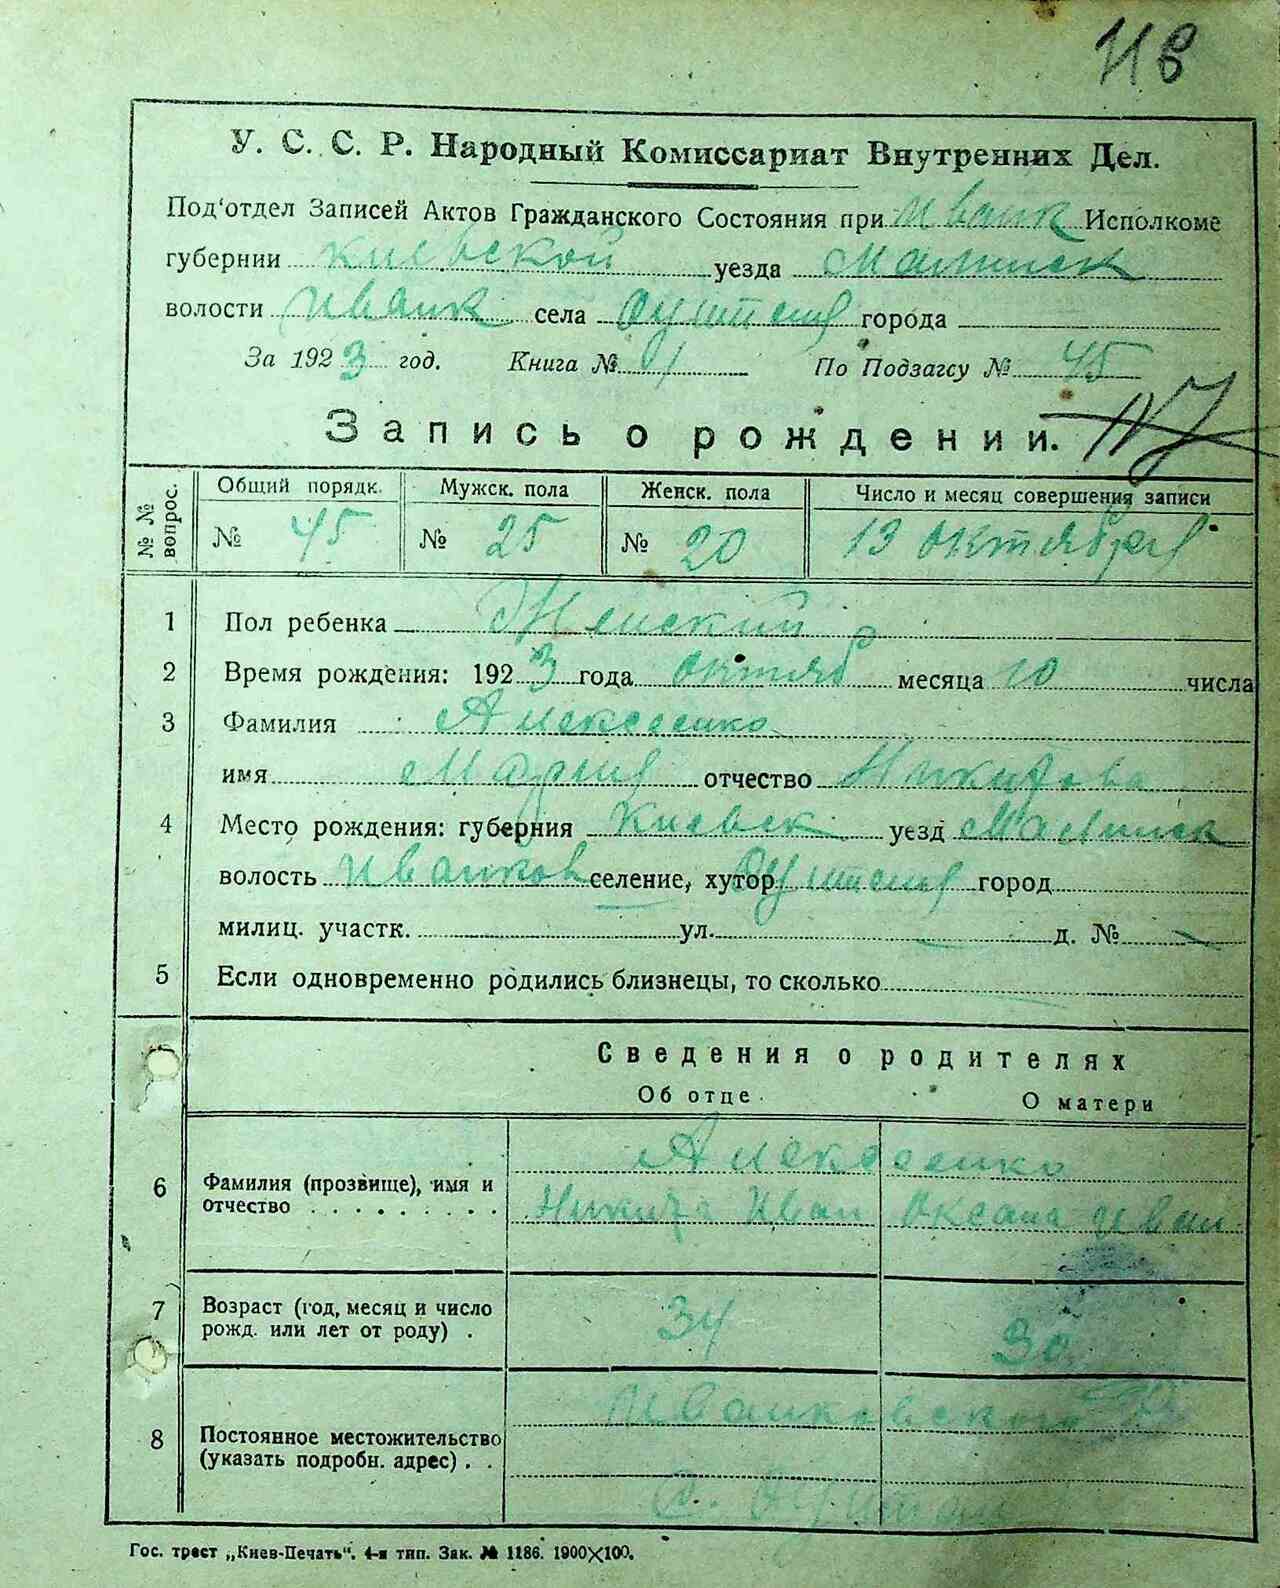 118
У. С. С. Р. Народный Комиссариат Внутренних Дел.
Под‘отдел Записей Актов Гражданского Состояния при Иванк Исполкоме
губернии Киевской уезда Малинск
волости Иванк села города
За 1923 год. Книга № 1 По Подзагсу № 45
Запись о рождении.
№ № вопрос. Общий порядк. Мужск. пола Женск. пола Число и месяц совершения записи
№ 45 № 25 № 20 13 октября
1 Пол ребенка Женский
2 Время рождения: 1923 года октяб месяца 10 числа
3 Фамилия Алексеенко
имя Мария отчество Никитова
4 Место рождения: губерния Киевск уезд Малинск
волость Иванков селение, хутор город
милиц. участк. ул. д. №
5 Если одновременно родились близнецы, то сколько
Сведения о родителях
Об отце О матери
Алексеенко
6 Фамилия (прозвище), имя и отчество Никита Иван Оксана Иван
7 Возраст (год, месяц и число рожд. или лет от роду) . 34 30
8 Постоянное местожительство (указать подробн. адрес) . . Иванковской
с.
Гос. трест „Киев-Печать“. 4-я тип. Зак. № 1186. 1900×100.